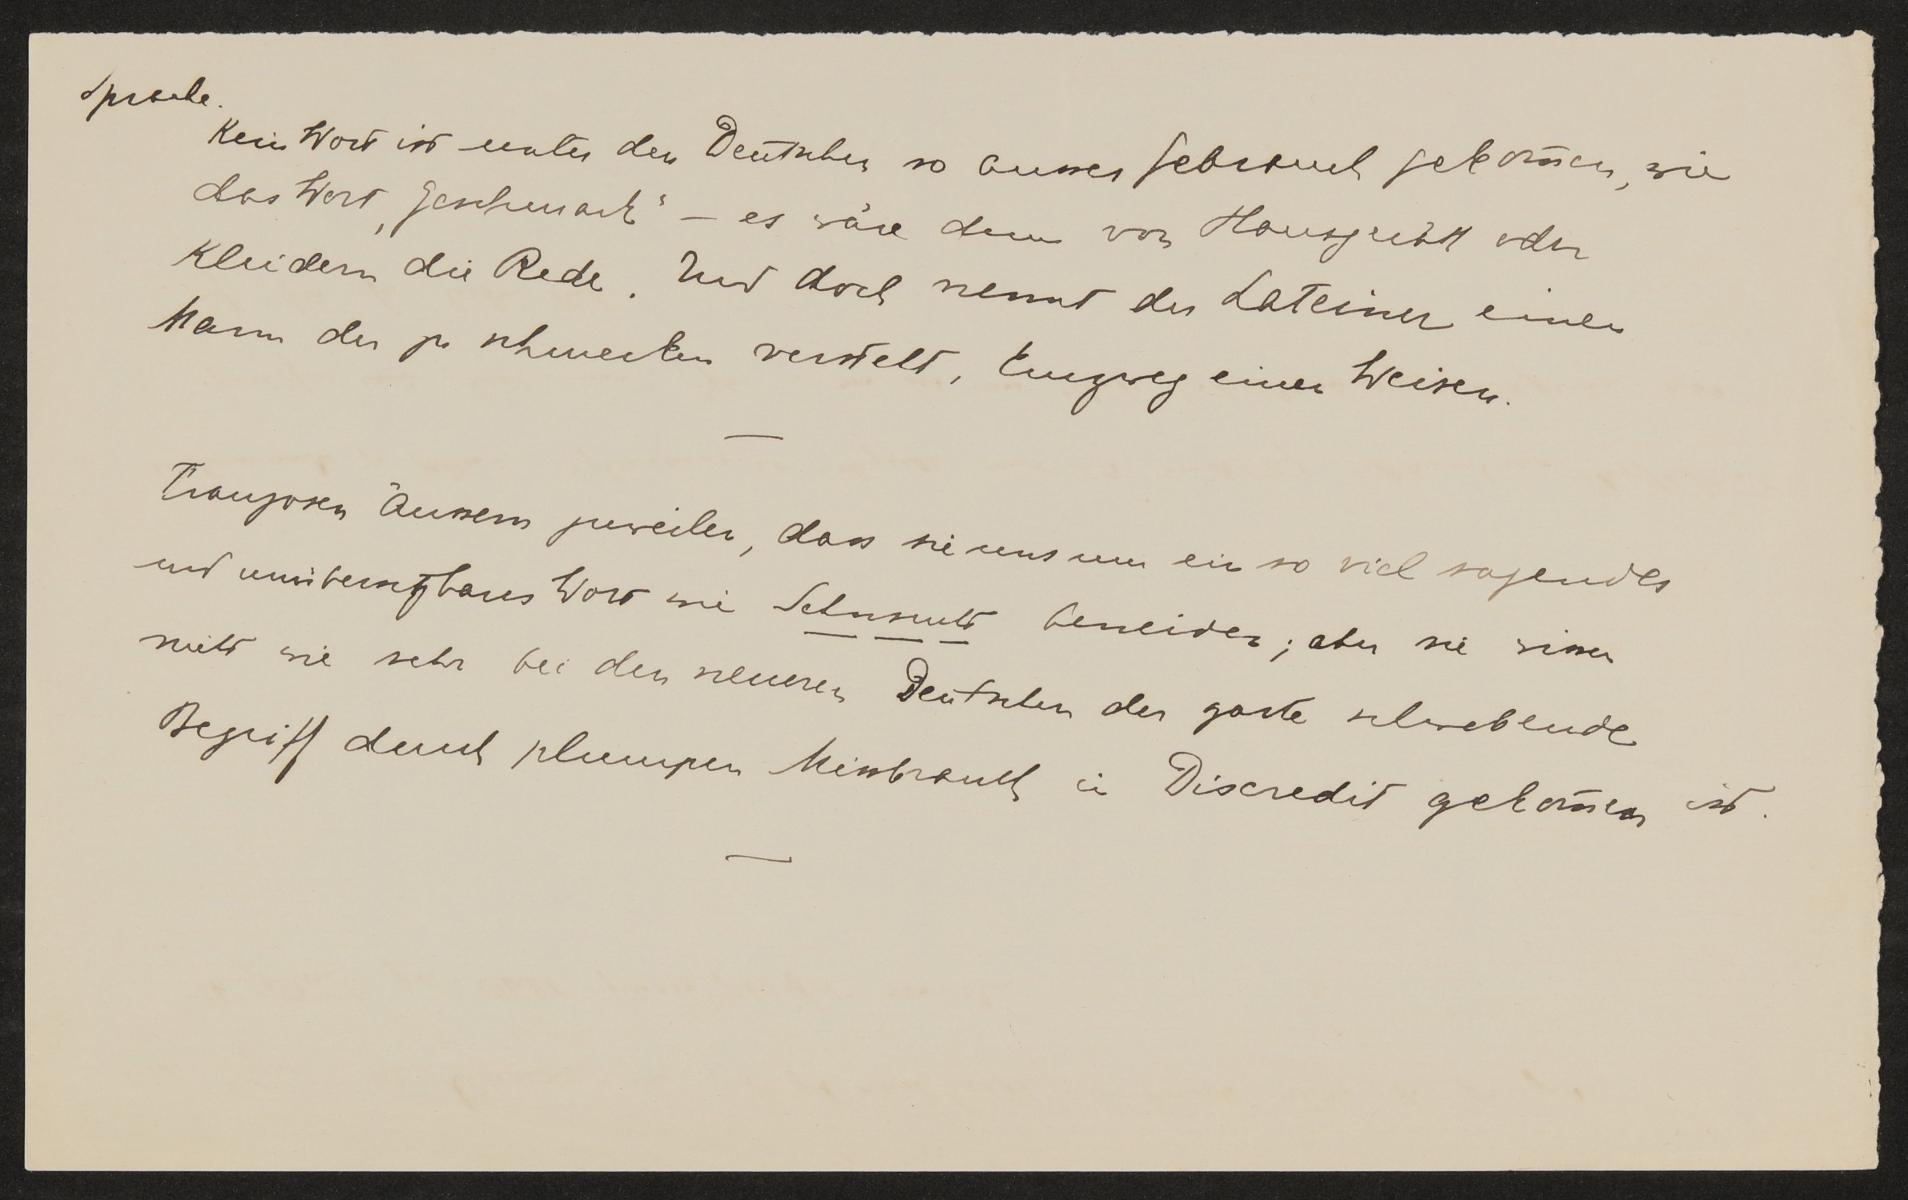 Sprache.
Kein Wort ist unter den Deutschen so ausser Gebrauch gekom̄en, wie
das Wort „Geschmack“ — es wäre denn von Hausgerät oder
Kleidern die Rede. Und doch nennt der Lateiner einen
Mann der zu schmecken versteht, kurzweg einen Weisen.
—
Franzosen äussern zuweilen, dass sie uns um ein so viel sagendes
und unübersetzbares Wort wie Sehnsucht beneiden; aber sie wissen
nicht wie sehr bei den neueren Deutschen der zarte schwebende
Begriff durch plumpen Missbrauch in Discredit gekom̄en ist.
—